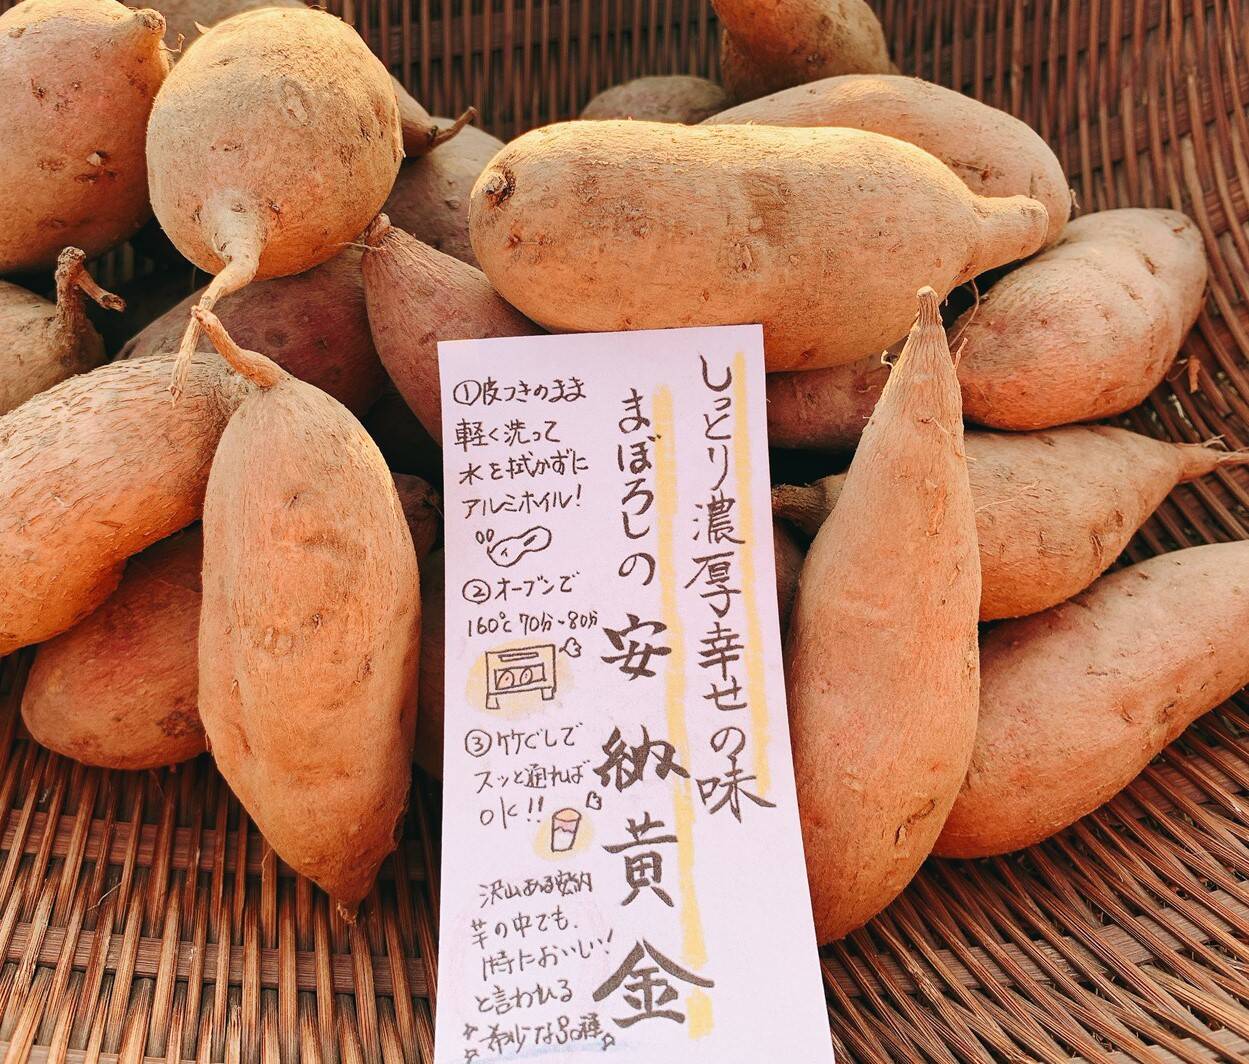 しっとり濃厚幸せの味
まぼろしの安納黄金
①皮つきのまま
軽く洗って
水を拭かずに
アルミホイル!
②オーブンで
160℃ 70分~80分
③竹ぐしで
スッと通れば
OK!!
沢山ある安納
芋の中でも、
特においしい!
と言われる
希少な品種